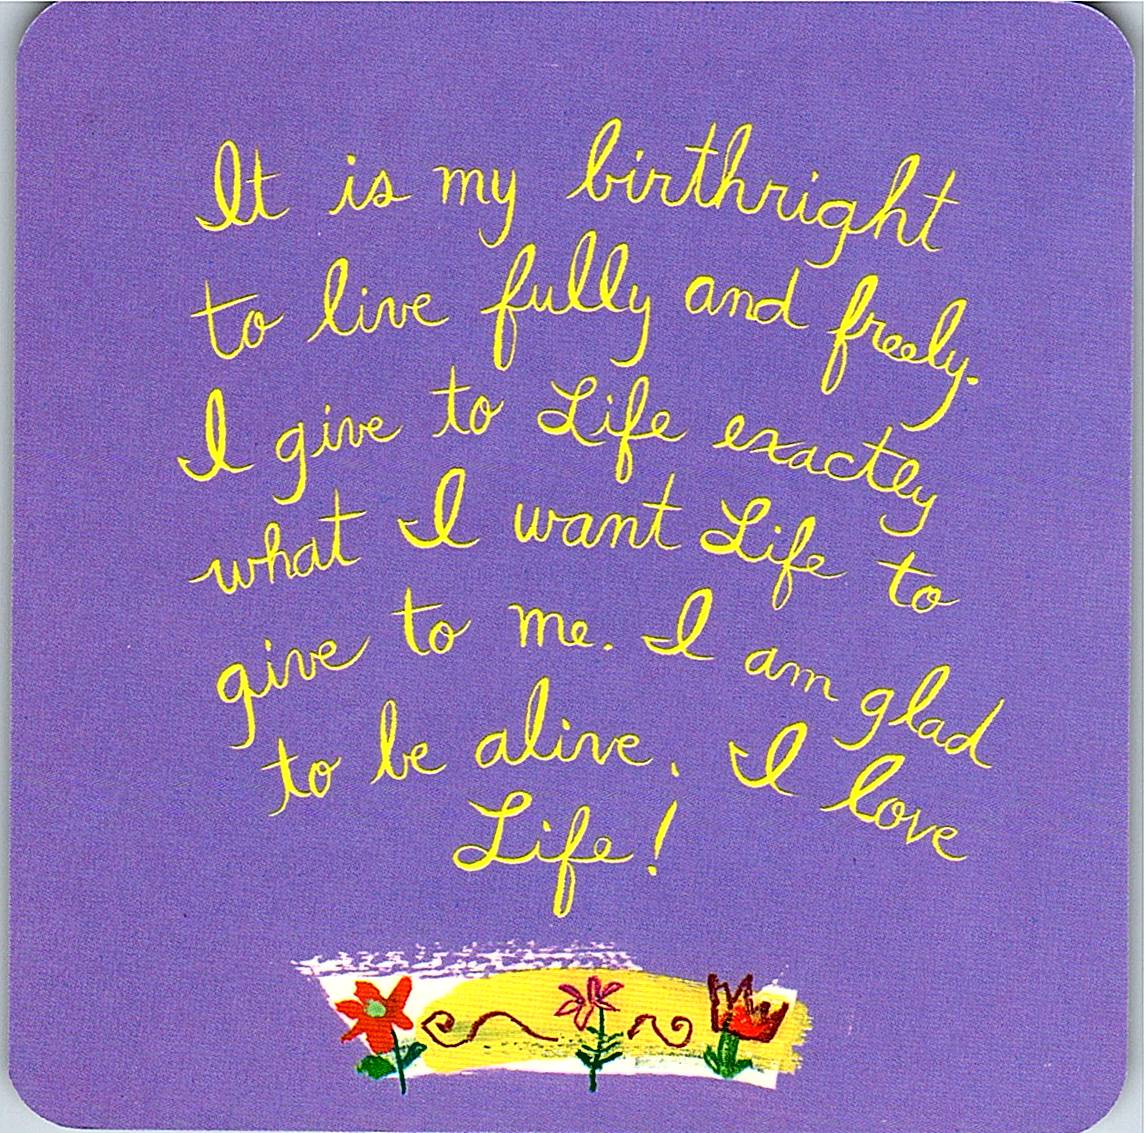 It is my birthright
to live fully and freely.
I give to Life exactly
what I want Life to
give to me. I am glad
to be alive. I love
Life!